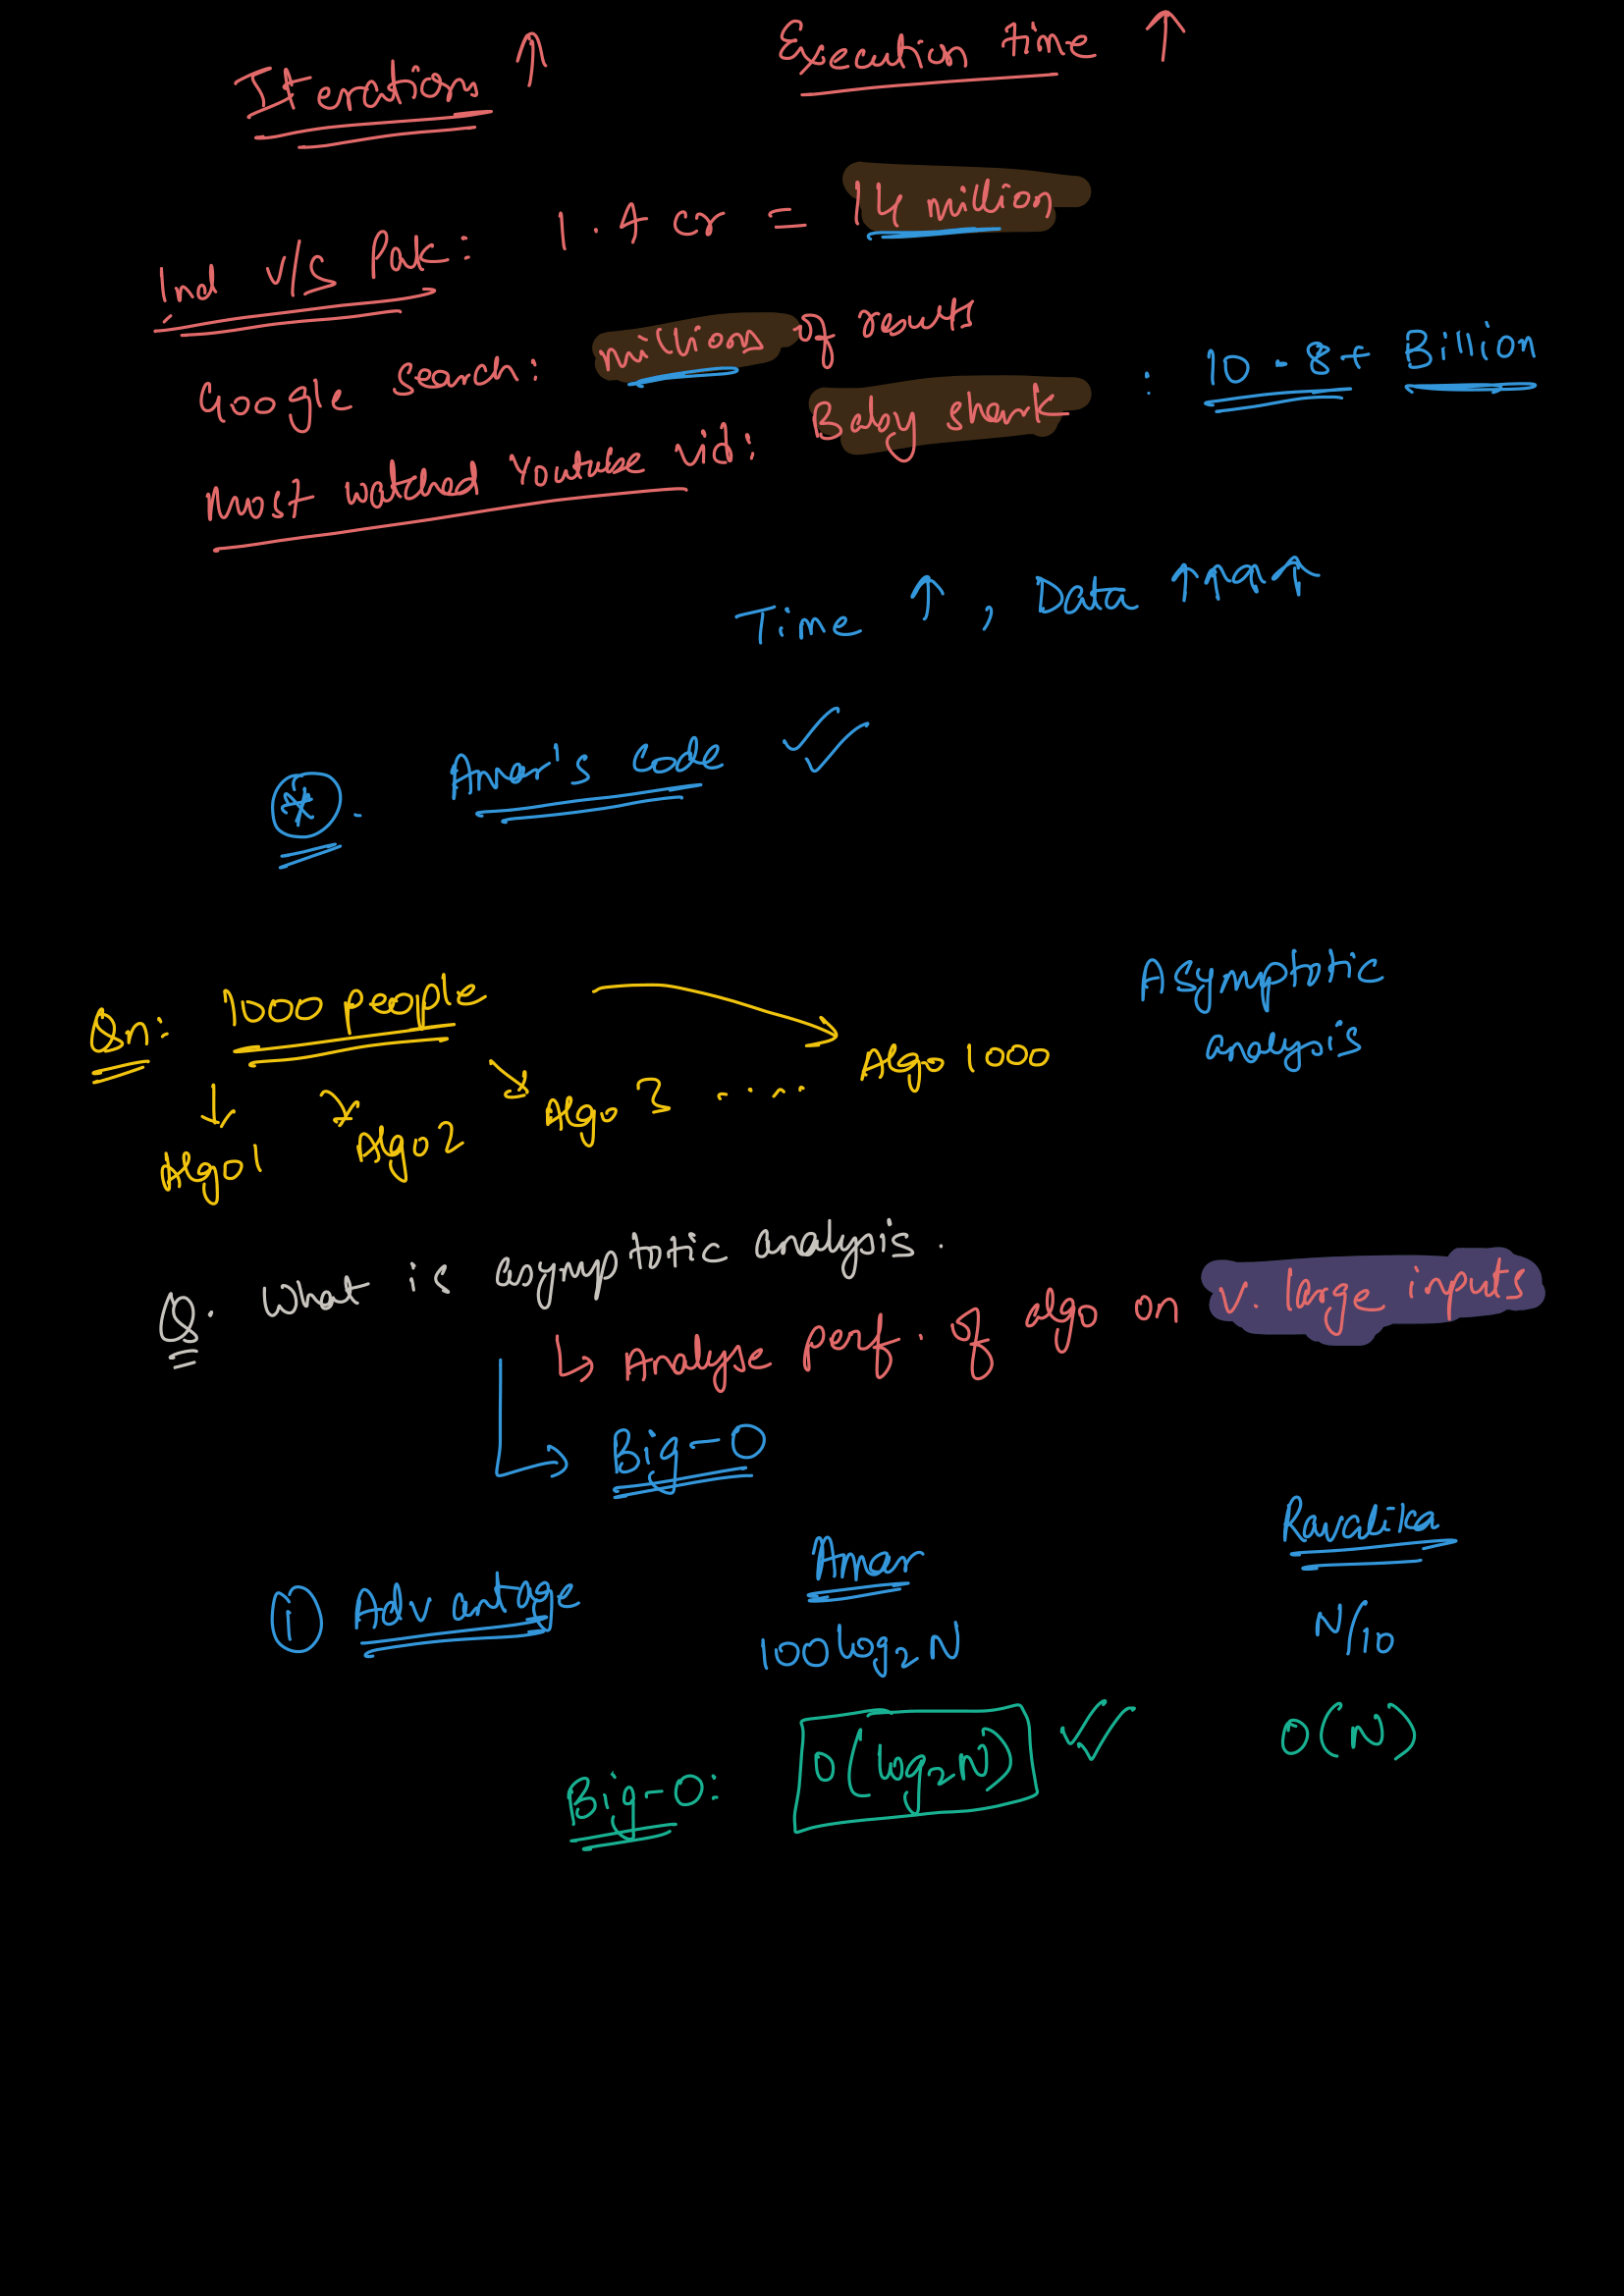 Iterations ↑ Execution time ↑
Ind v/s Pak: 1.4 cr = 14 million
Google search: millions of results
Most watched Youtube vid: Baby shark : 10.8+ Billion
Time ↑, Data ↑↑↑↑
*. Amar's code ✓✓
Qn: 1000 people → Algo 1000
↓ Algo1 ↘ Algo2 ↘ Algo 3 .....
Asymptotic
analysis
Q. What is asymptotic analysis.
↳ Analyse perf. of algo on v. large inputs
↳ Big-O
① Advantage Amar Ravalika
100log₂N N/10
Big-O: O(log₂N) ✓✓ O(N)